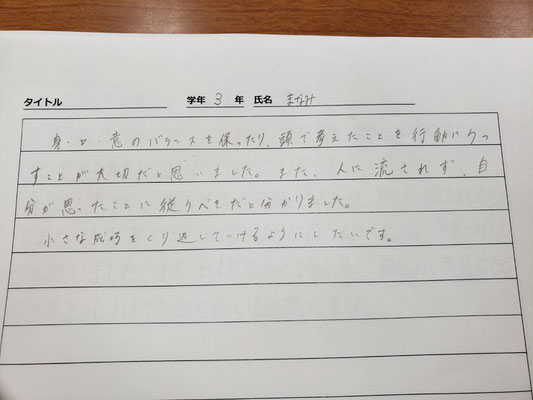 タイトル 学年 3 年 氏名 まなみ
身・口・意のバランスを保ったり、頭で考えたことを行動にうつ
すことが大切だと思いました。また、人に流されず、自
分が思ったことに従うべきだと分かりました。
小さな成功をくり返していけるようにしたいです。